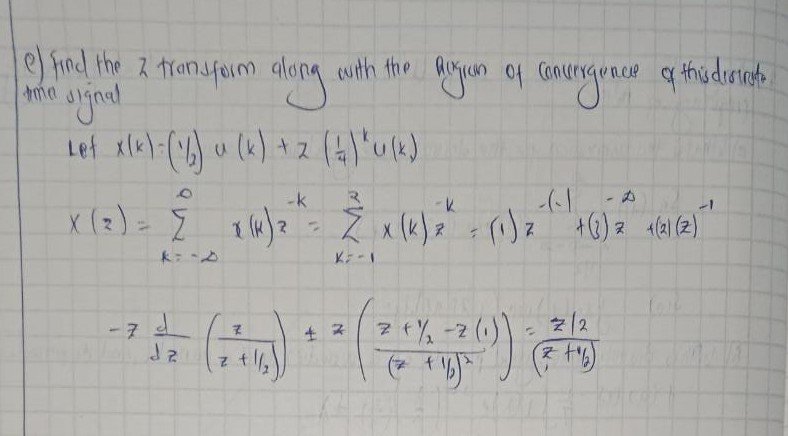 e) find the z transform along with the region of convergence of this discrete
time signal
Let x(k) = (1/2) u(k) + 2 (1/4)^k u(k)
X(z) = ∑_{k=-∞}^{∞} x(k) z^{-k} = ∑_{k=-1}^{2} x(k) z^{-k} = (1) z^{-(-1)} + (3) z^{-0} + (2)(z)^{-1}
-z d/dz (z/(z + 1/2)) ± z ((z + 1/2 - z(1))/(z + 1/2)^2) = (z/2)/(z + 1/2)